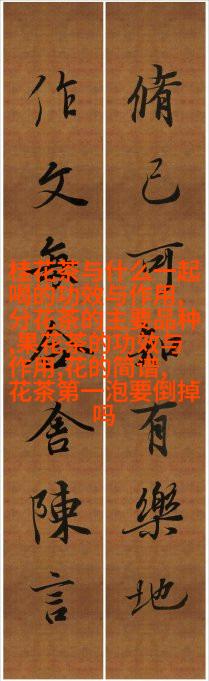 脩己可有樂地
作文舍陳言
桂花茶与什么一起
喝的功效与作用,
分花茶的主要品种
,果花茶的功效与
作用,花的简谱,
花茶第一泡要倒掉
吗